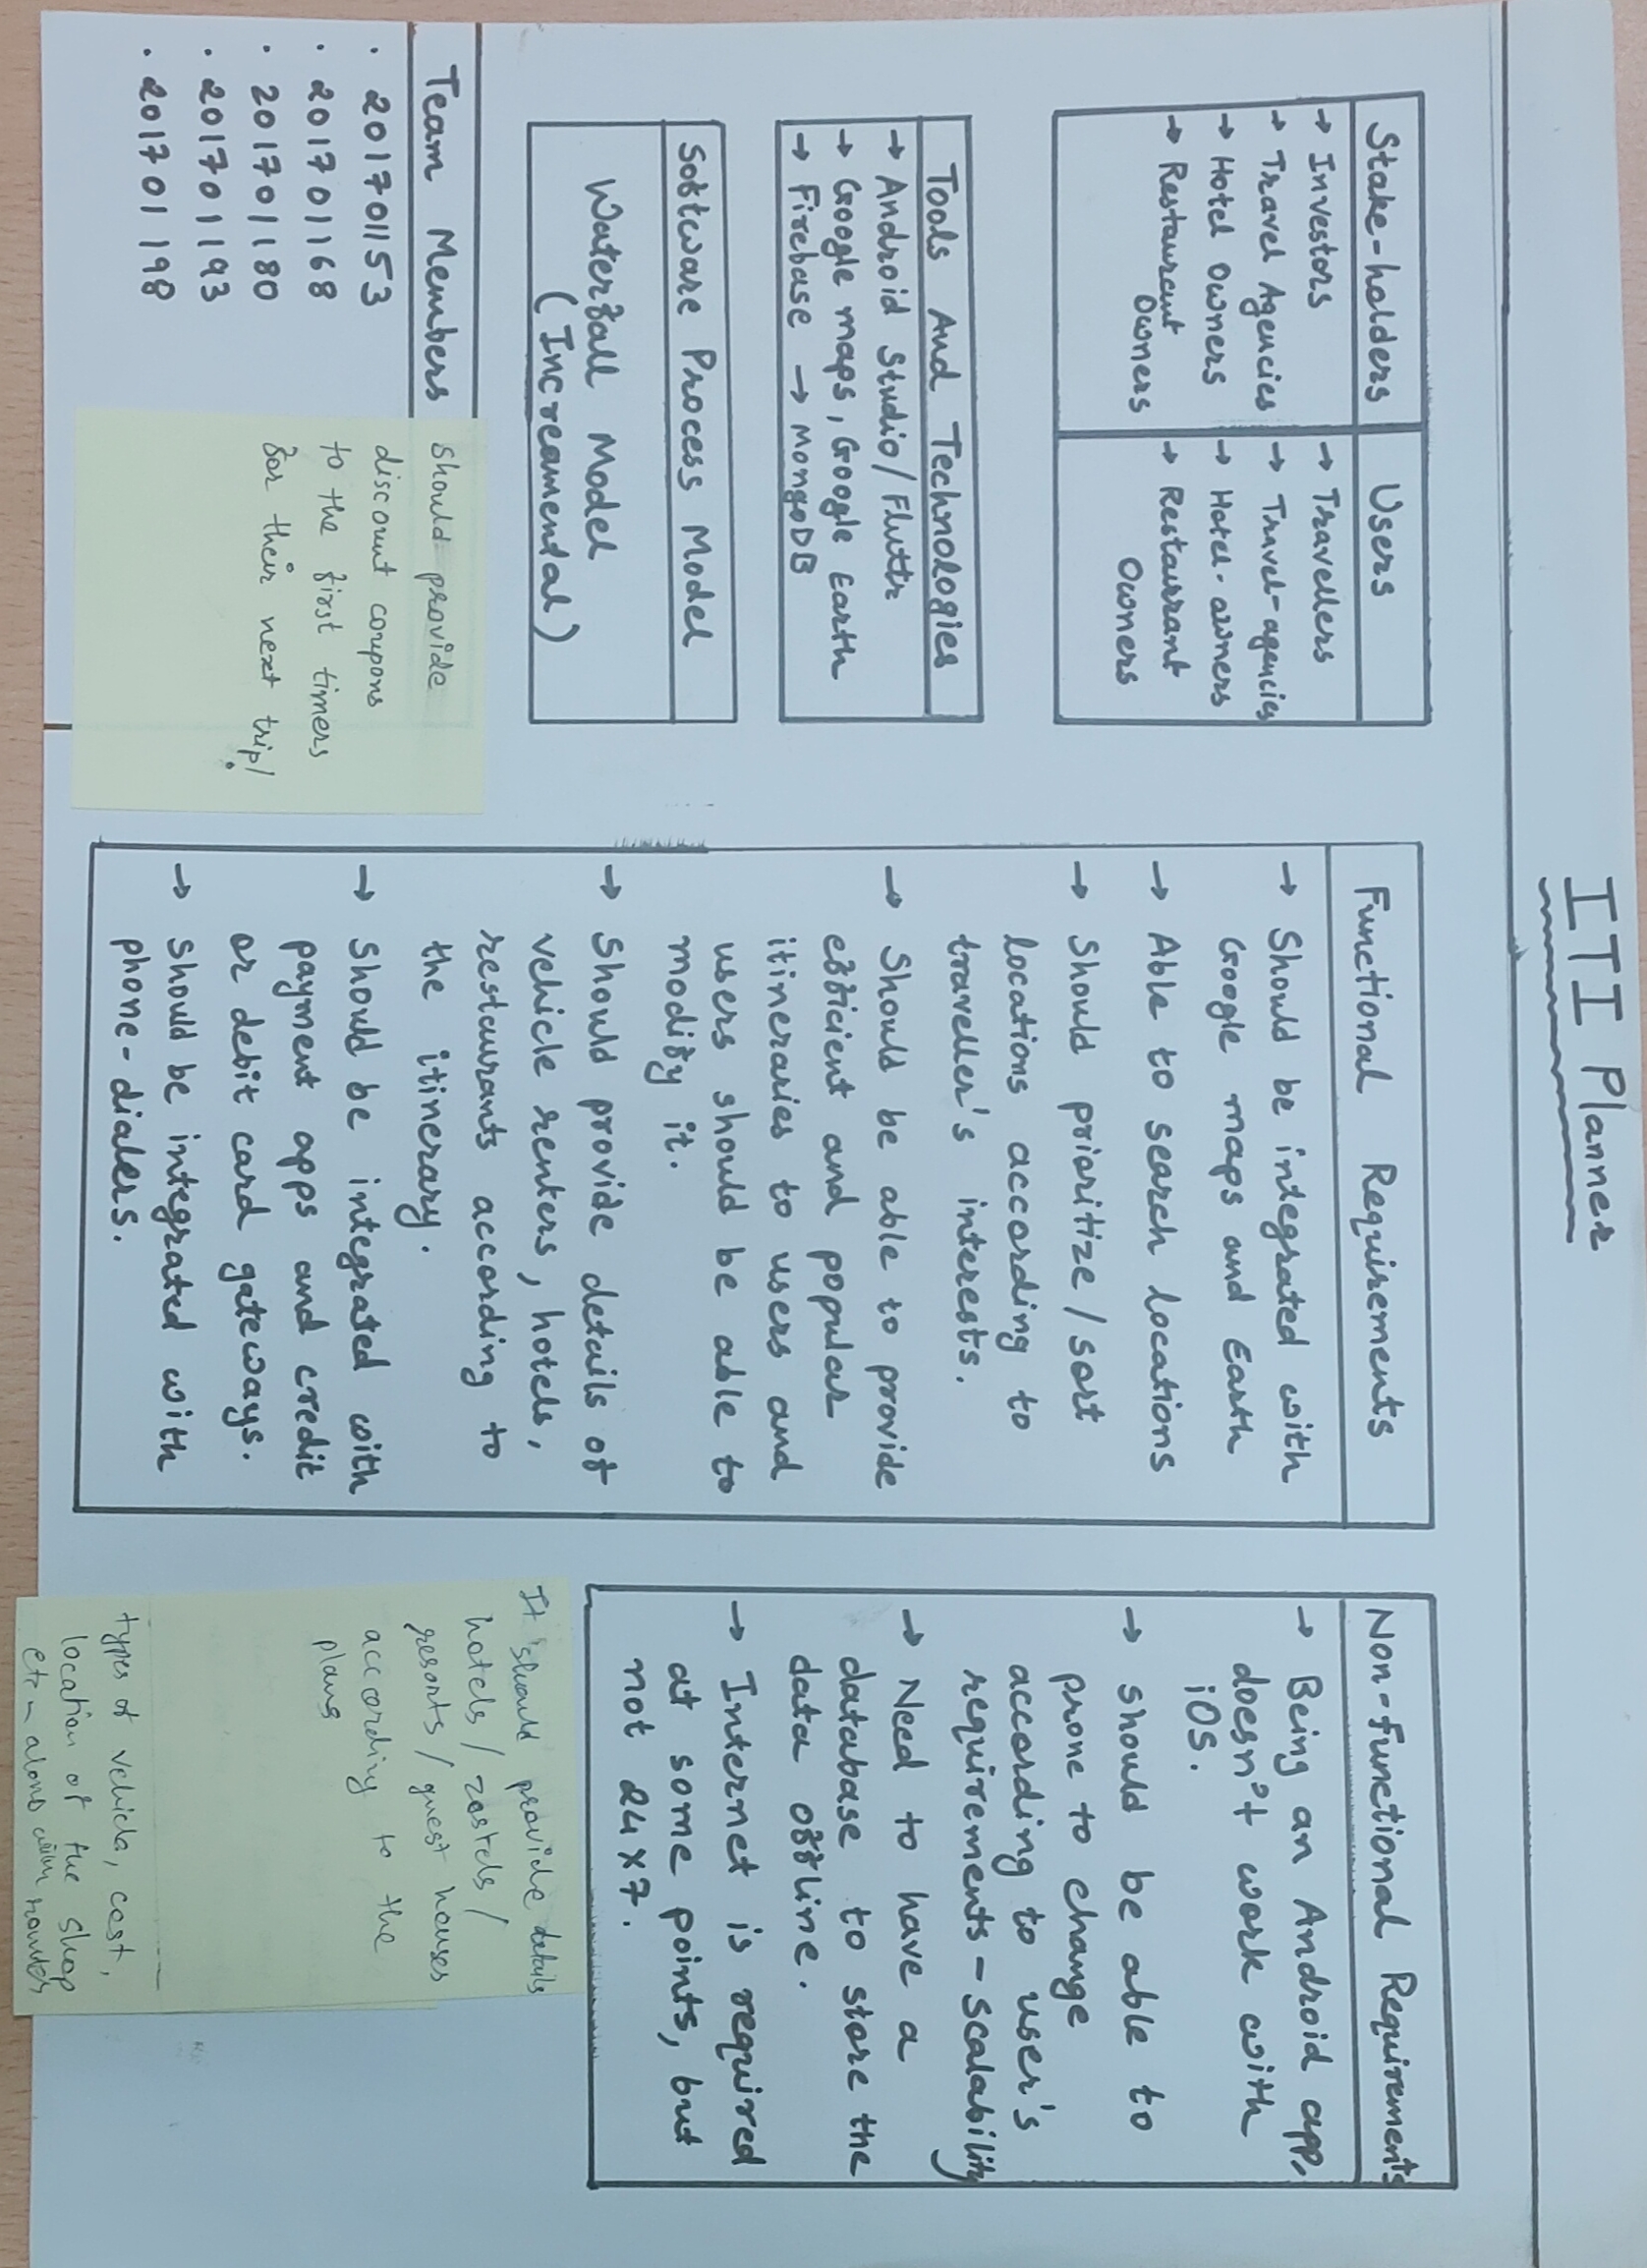 ITI Planner
Stake-holders
→ Investors
→ Travel Agencies
→ Hotel Owners
→ Restaurant
Owners
Users
→ Travellers
→ Travel-agencies
→ Hotel-owners
→ Restaurrant
Owners
Tools And Technologies
→ Android Studio/Fluttr
→ Google maps, Google Earth
→ Firebase → MongoDB
Software Process Model
Waterfall Model
(Increamental)
Team Members
· 201701153
· 201701168
· 201701180
· 201701193
· 201701198
should provide
discount coupons
to the first timers
for their next trip!
Functional Requirements
→ Should be integrated with
Google maps and Earth
→ Able to search locations
→ Should prioritize/sort
locations according to
traveller's interests.
→ Should be able to provide
efficient and popular
itineraries to users and
users should be able to
modify it.
→ Should provide details of
vehicle renters, hotels,
restaurants according to
the itinerary.
→ Should be integrated with
payment apps and credit
or debit card gateways.
→ Should be integrated with
phone-dialers.
Non-Functional Requirements
→ Being an Android app,
doesn't work with
iOS.
→ should be able to
prone to change
according to user's
requirements - scalability
→ Need to have a
database to store the
data offline.
→ Internet is required
at some points, but
not 24x7.
It should provide details
hotels / zostels /
resorts / guest houses
according to the
plans
types of vehicle, cost,
location of the shop
etc - along with routes